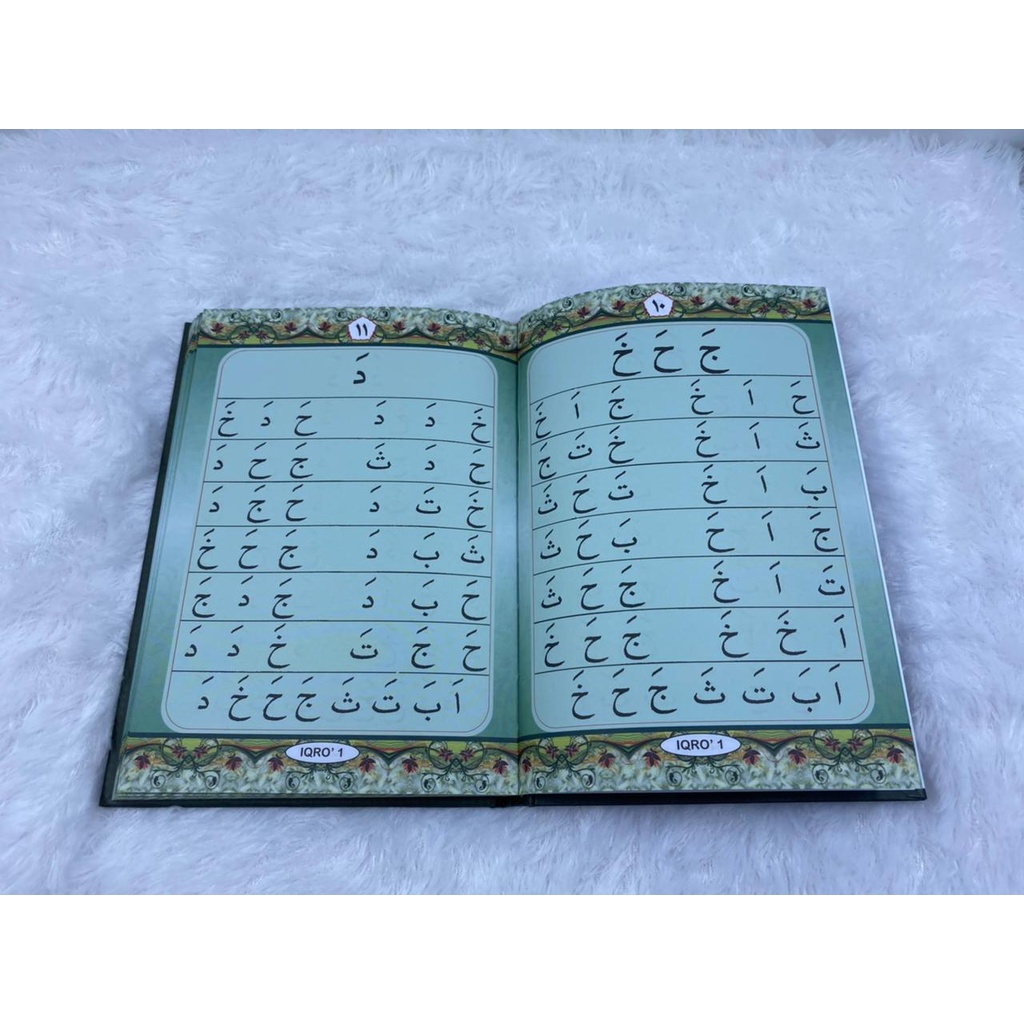 ١٠
جَ حَ خَ
حَ اَ خَ جَ اَ خَ
ثَ اَ خَ خَ تَ جَ
بَ اَ خَ تَ حَ ثَ
جَ اَ حَ بَ حَ ثَ
تَ اَ خَ جَ حَ ثَ
اَ خَ خَ جَ حَ خَ
اَ بَ تَ ثَ جَ حَ خَ
IQRO' 1
١١
دَ
خَ دَ دَ حَ دَ خَ
حَ دَ ثَ جَ حَ دَ
خَ تَ دَ حَ جَ دَ
ثَ بَ دَ جَ حَ خَ
حَ بَ دَ جَ دَ جَ
حَ جَ تَ خَ دَ دَ
اَ بَ تَ ثَ جَ حَ خَ دَ
IQRO' 1